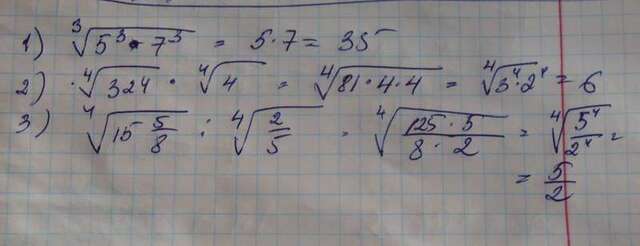 1) ∛(5³ · 7³) = 5 · 7 = 35
2) · ∜324 · ∜4 = ∜(81 · 4 · 4) = ∜(3⁴ · 2⁴) = 6
3) ∜(15 5/8) : ∜(2/5) = ∜((125 · 5)/(8 · 2)) = ∜(5⁴/2⁴) =
= 5/2